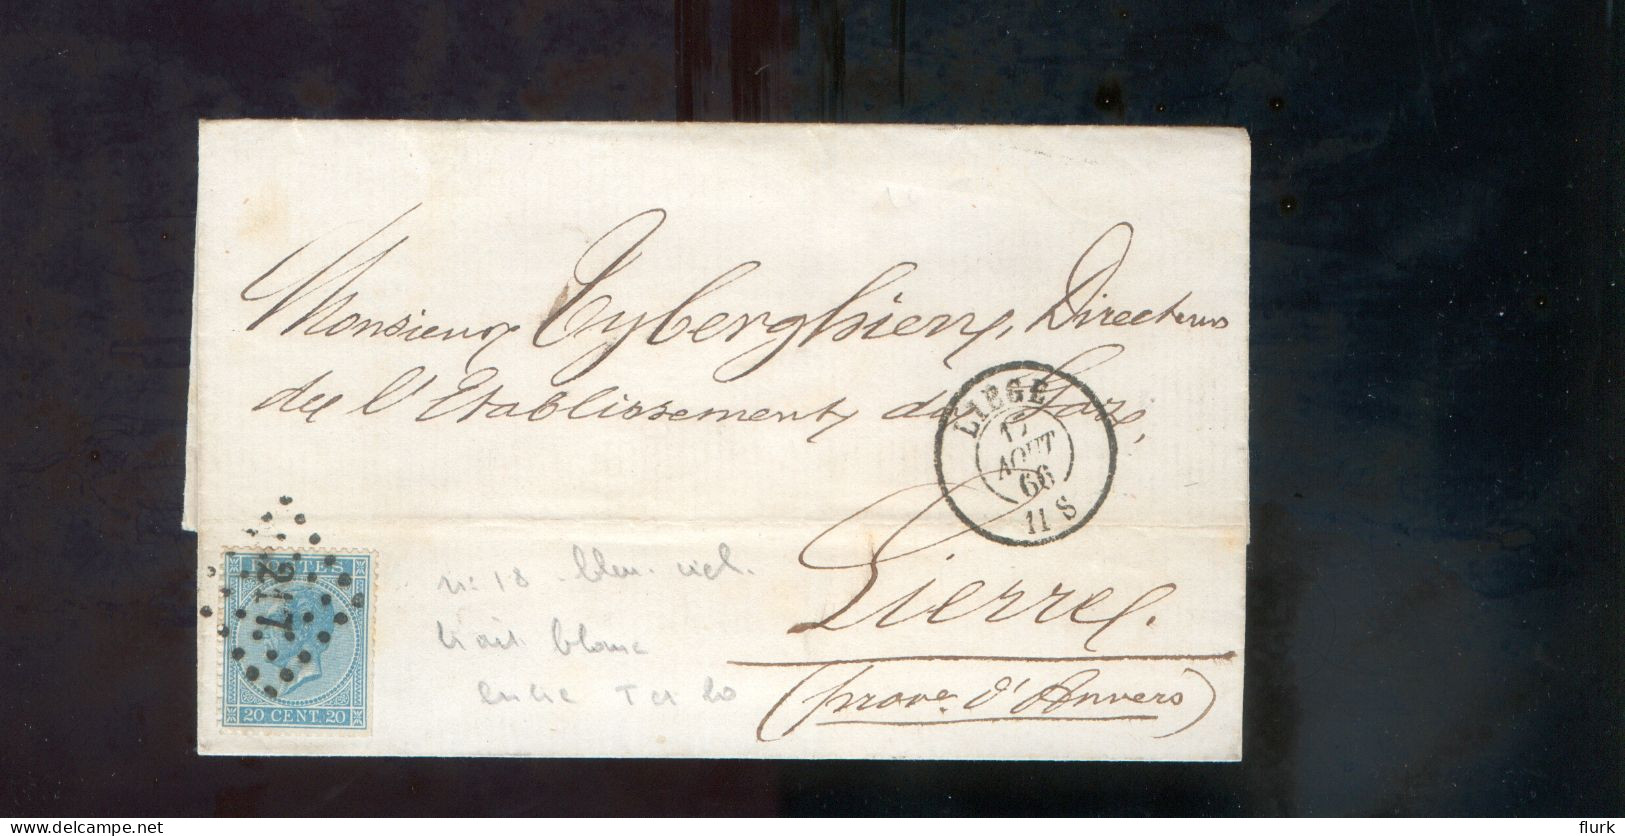 Monsieur Tyberghien, Directeur
de l'Etablissement du Gaz,
LIEGE
17
AOUT
66
11 S
Lierre.
(prov.e d'Anvers)
POSTES
217
20 CENT. 20
n: 18 . bleu. viol.
trait blanc
entre T et 20
delcampe.net
flurk